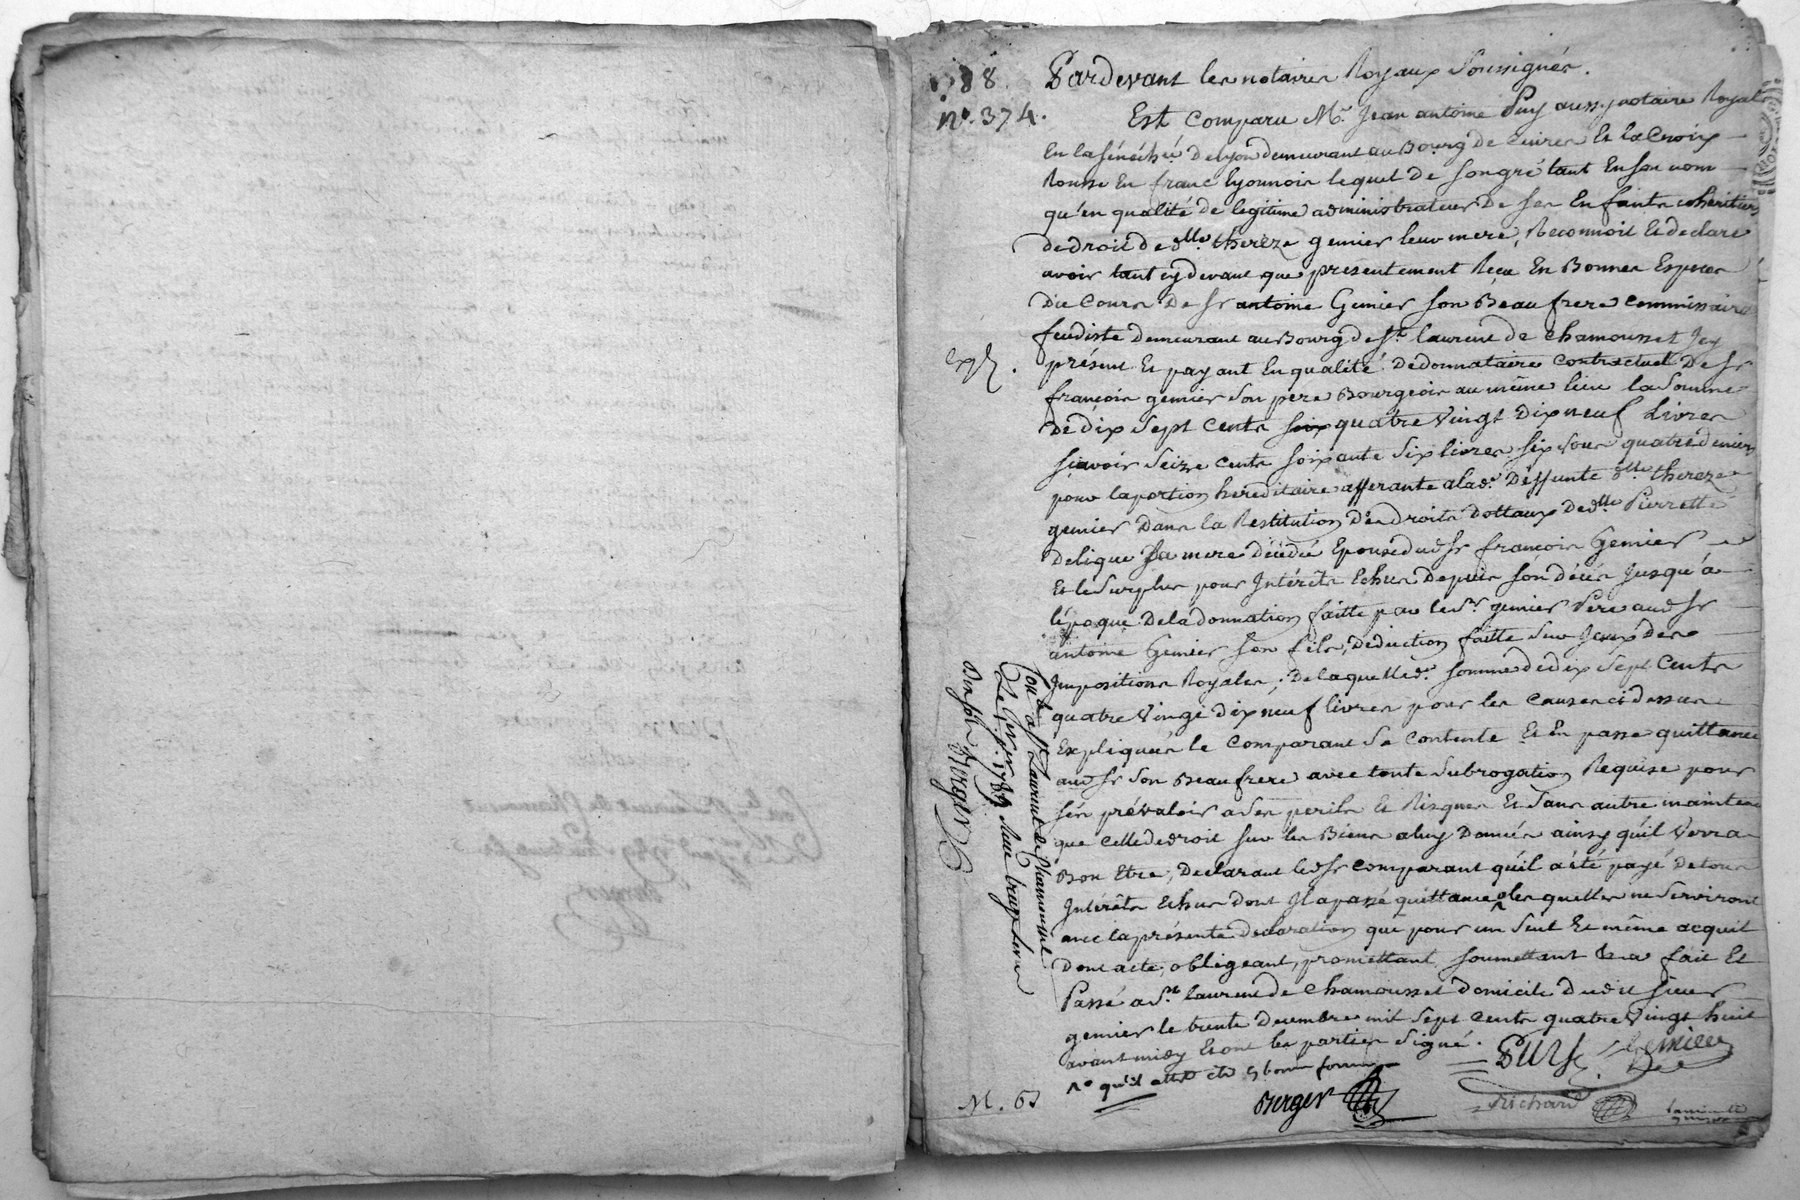 88.
n°. 374.
Pardevant les notaires Royaux Soussignés.
Est Comparu Mr. Jean antoine Puy aussy notaire Royal
En la sénéchée de Lyon demeurant au Bourg de Cuires Et La Croix
Rousse En franc Lyonnois lequel de son gré tant En son nom
qu'en qualité de legitime administrateur De ses Enfants cohéritiers
de droit de dlle. thereze gemier leur mere, Reconnoit Et declare
avoir tant cy devant que presentement Recu En Bonnes Especes
du Cours De Sr antoine Gemier son Beau frere Commissaire
feudiste demeurant au Bourg de St. laurent de Chamousset Icy
présent Et payant En qualité de donnataire Contractuel De Sr
françois gemier son pere Bourgeois au même lieu la somme
de dix Sept Cents six quatre Vingt dix neuf Livres
sçavoir Seize cents soixante six livres six sous quatre deniers
pour la portion héréditaire afferante a lade. Deffunte dlle. thereze
gemier Dans la Restitution des droits dottaux de dlle. Pierrette
Deligue Sa mere décédée Epouse dud Sr françois Gemier
Et le Surplus pour Intérêts Echus Depuis son décés Jusqu'à
l'époque De la donnation faitte par le Sr. gemier Pere aud Sr
antoine Gemier son fils, déduction faitte sur Iceux des
Impositions Royales; De laquelle de. somme de dix Sept Cents
quatre Vingt dix neuf livres pour les Causes ci dessus
Expliquées le Comparant Se Contente Et En passe quittance
aud Sr Son Beau frere avec toute Subrogation Requise pour
s'en prévaloir a ses perils Et Risques Et Sans autre maintenue
que celle de droit sur les Biens a luy Donnés ainsy qu'il Verra
Bon Etre, Declarant led Sr Comparant qu'il a été payé De tous
Intérêts Echus dont Il a passé quittance lesquelles ne Serviront
avec la présente declaration que pour un Seul Et même acquit
Dont acte, obligeant, promettant, soumettant &a fait Et
Passé a St. laurent de Chamousset domicile dudit sieur
gemier le trente Decembre mil Sept Cents quatre Vingt huit
avant midy Et ont les parties Signé.
PUY
Gemier
Berger
Richard
expé.
Con.lé a St Laurent de Chamousset
Le 1789
Berger
M. 63